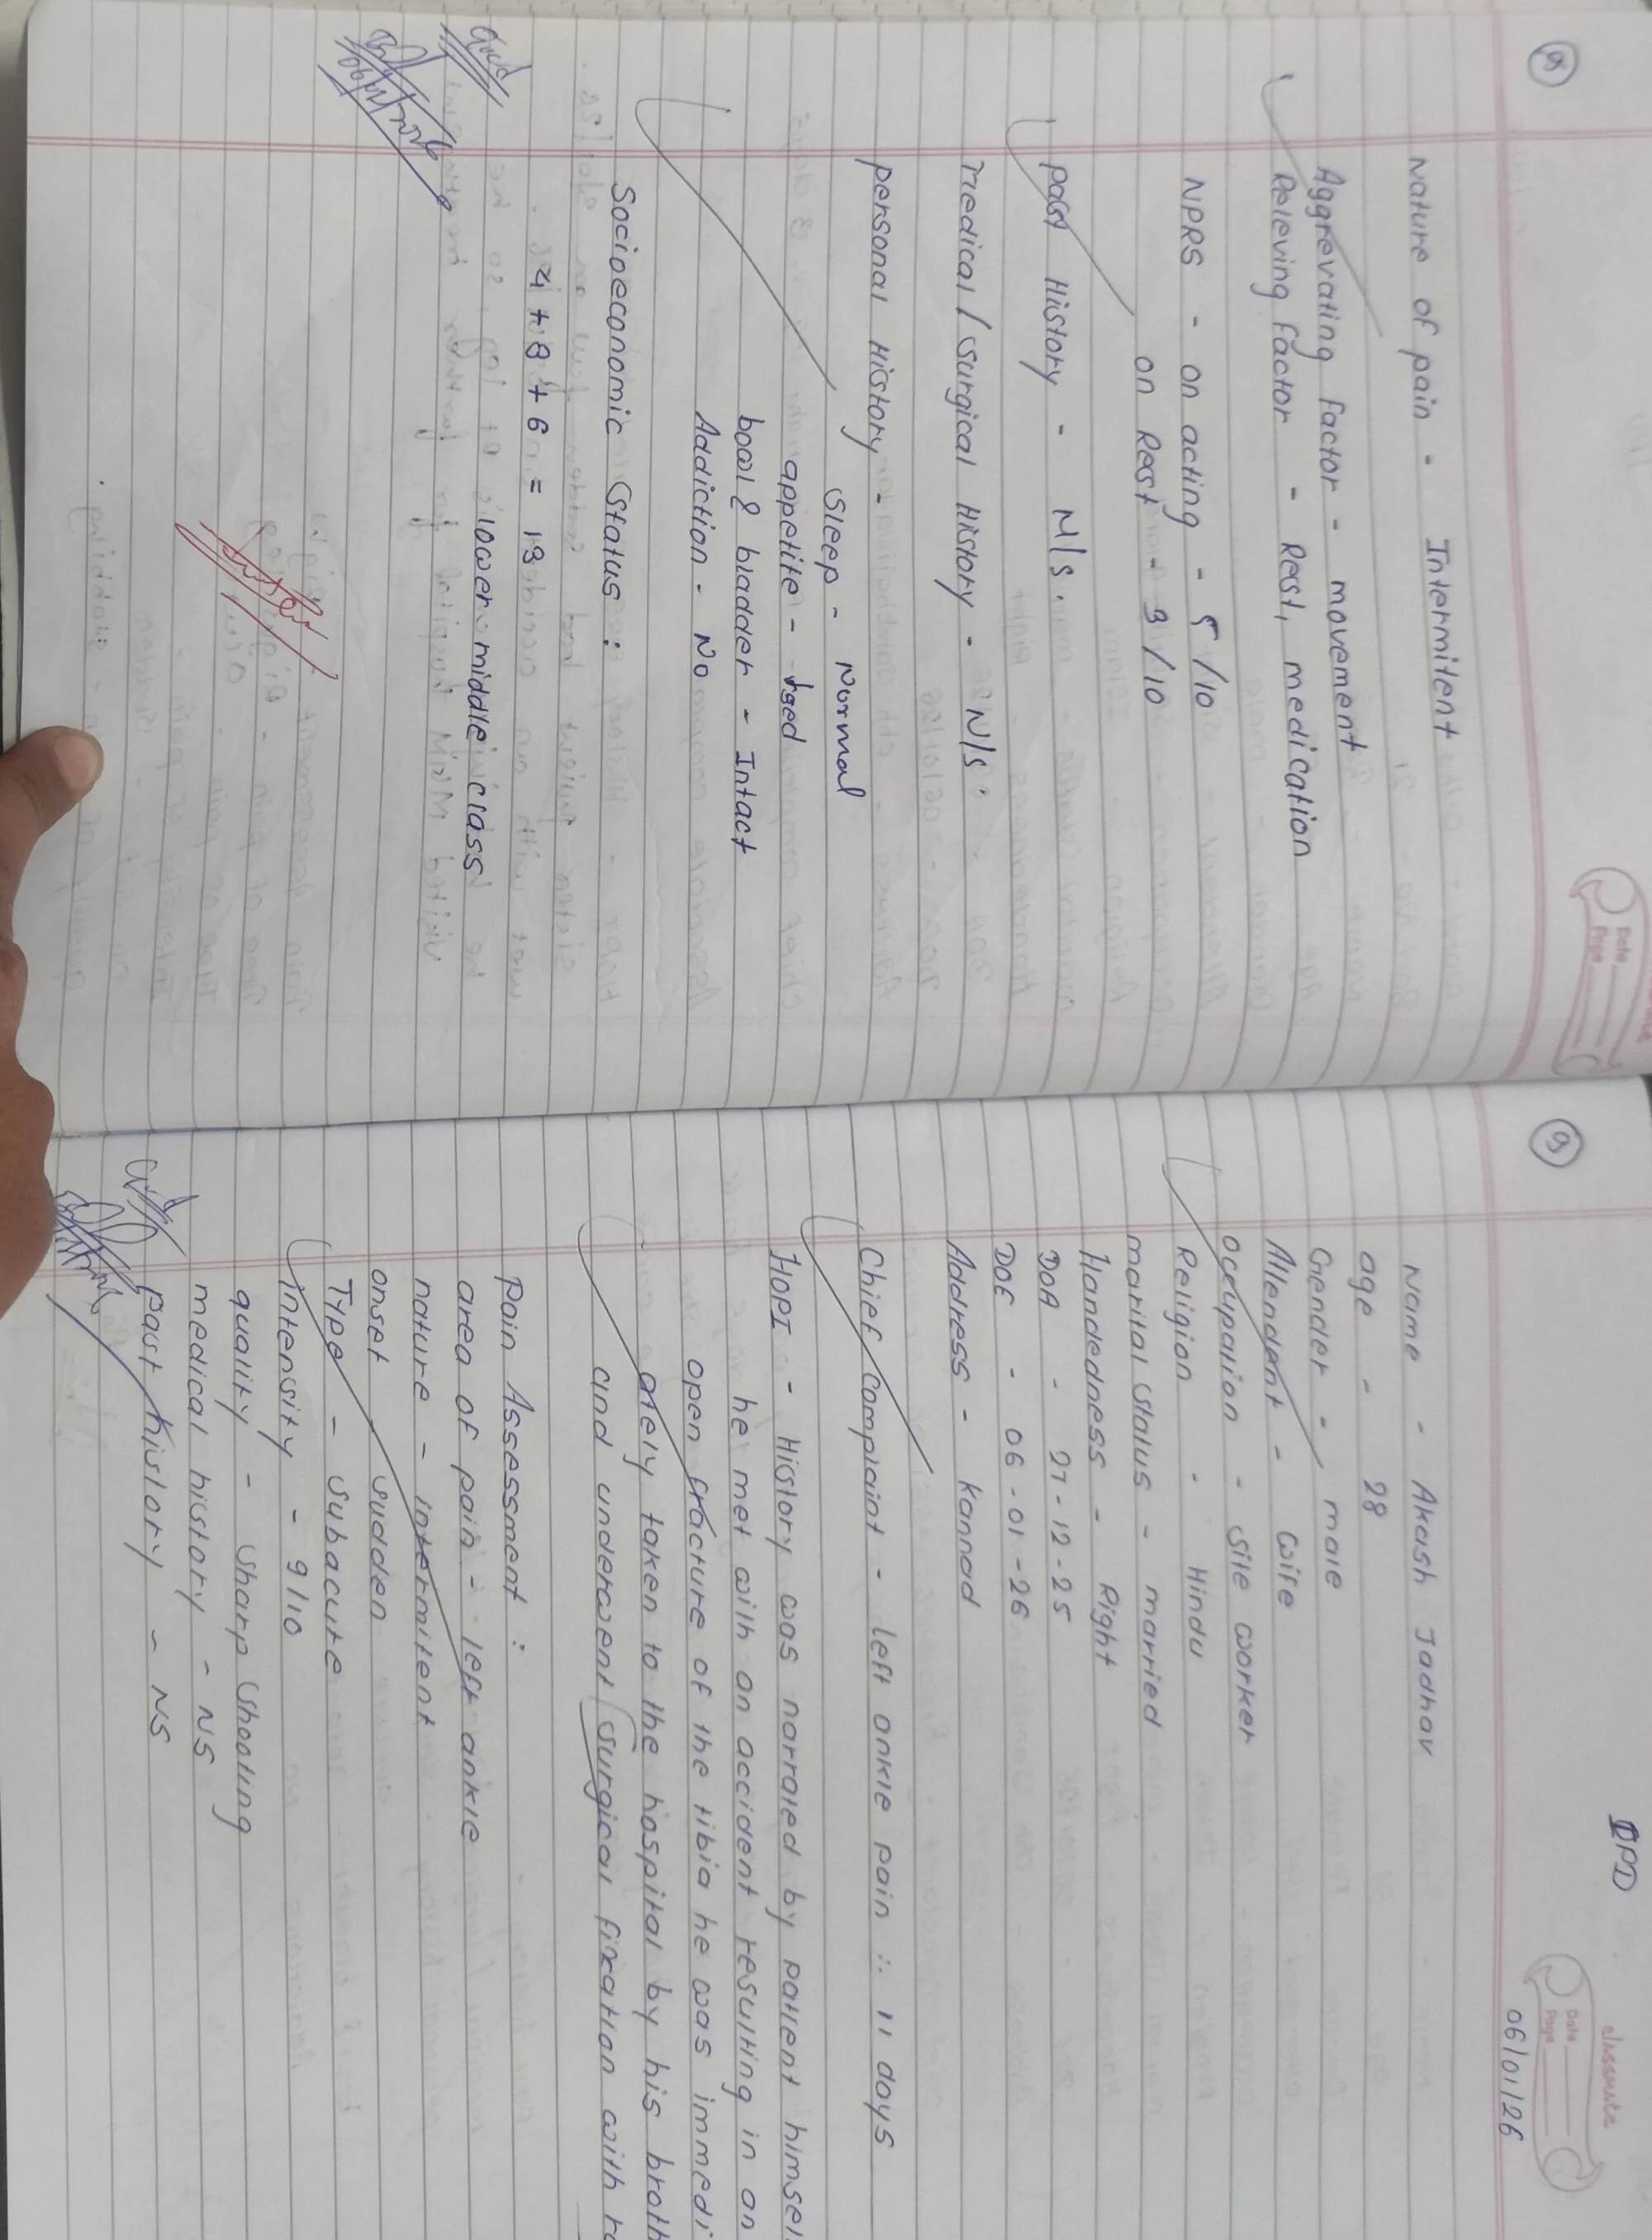 Nature of pain - Intermitent
Aggrevating factor - movement
Releving factor - Rest, medication
NPRS - on acting - 5/10
on Rest - 3/10
past History - N/s.
Medical/surgical History - N/s
personal History -
sleep - Normal
appetite -
bowl & bladder - Intact
Addiction - No
Socioeconomic status :
4 + 8 + 6 = 13
lower middle class
9
IPD
classmate
Date
Page
06/01/26
Name - Akash Jadhav
age - 28
Gender - male
Attendent - wife
occupation - site worker
Religion - Hindu
marital status - married
Handedness - Right
DOA - 27-12-25
DOE - 06-01-26
Address - kannad
Chief complaint - left ankle pain : 11 days
HOPI - History was narrated by patient himsel
he met with an accident resulting in an
open fracture of the tibia he was immedi
ately taken to the hospital by his broth
and underwent surgical fixation with
Pain Assessment :
area of pain - left ankle
nature - intermitent
onset sudden
Type - subacute
intensity - 9/10
quality - sharp shooting
medical history - NS
past history - NS